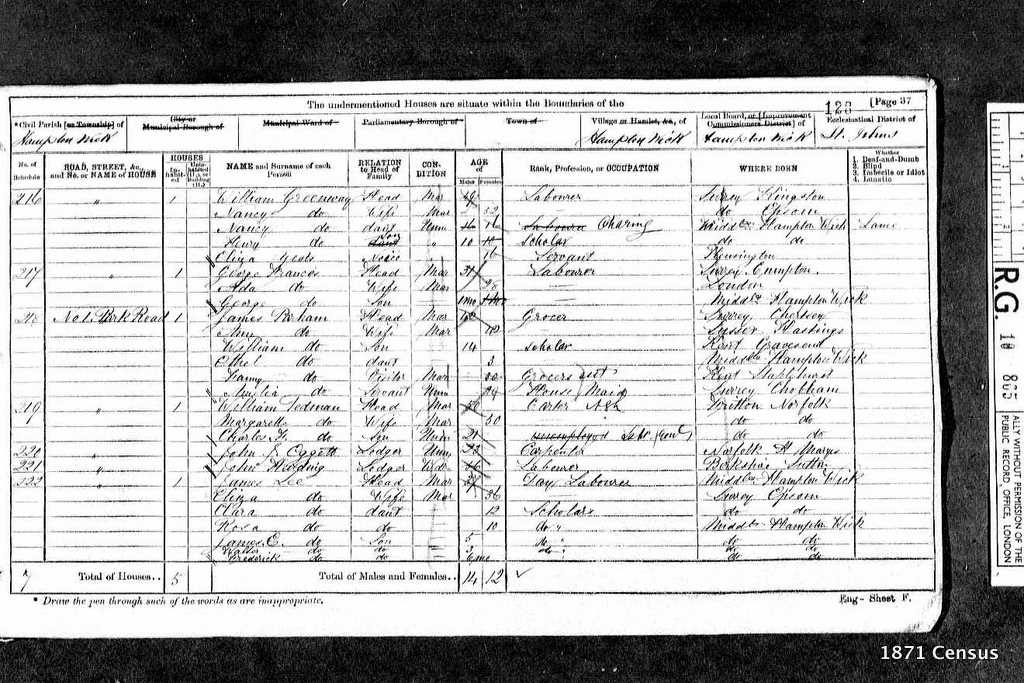 128 [Page 37
The undermentioned Houses are situate within the Boundaries of the
*Civil Parish [or Township] of City or Municipal Borough of Municipal Ward of Parliamentary Borough of Town of Village or Hamlet, &c., of Local Board, or [Improvement Commissioners District] of Ecclesiastical District of
Hampton Wick Hampton Wick Hampton Wick St. Johns
No. of Schedule ROAD, STREET, &c., and No. or NAME of HOUSE HOUSES In-habit-ed Unin-habited (U.), or Building (B.) NAME and Surname of each Person RELATION to Head of Family CON-DITION AGE of Males Females Rank, Profession, or OCCUPATION WHERE BORN Whether 1. Deaf-and-Dumb 2. Blind 3. Imbecile or Idiot 4. Lunatic
216 " 1 William Greenway Head Mar Labourer Surrey Kingston
Nancy do Wife Mar 52 do Epsom
Nancy do daut Unm 16 Charing Middx Hampton Wick Lame
Henry do Son " 10 Scholar do do
Eliza Niece 16 Servant Kensington
217 " 1 George Frances Head Mar 31 Labourer Surrey
Ada do Wife Mar 28 London
George do Son 1mo Middx Hampton Wick
218 No 1. Park Road 1 James Head Mar Grocer Surrey Chertsey
Amy do Wife Mar Sussex Hastings
William do Son 14 Scholar Kent Gravesend
Ethel do daut 3 Middx Hampton Wick
Fanny do Visitor Mar Grocers Kent Staplehurst
Servant Unm House Maid Surrey Chobham
219 " 1 William Head Mar Carter Norfolk
Margarette do Wife Mar 50 do do
Charles do Son Unm 21 Unemployed do do
220 " John J. Lodger Unm 23 Carpenter Norfolk
221 " John Lodger Labourer Berkshire
222 " 1 James Lee Head Mar Day Labourer Middx Hampton Wick
Eliza do Wife Mar 36 Surrey Epsom
Clara do daut 12 Scholars do do
Rosa do do 10 do " Middx Hampton Wick
James E. do Son 5 do " do do
Walter do do 3 do " do do
Frederick do do 6mo do do
7 Total of Houses.. 5 Total of Males and Females.. 14 12
* Draw the pen through such of the words as are inappropriate.
Eng- Sheet F.
R.G. 10 865
ALLY WITHOUT PERMISSION OF THE
PUBLIC RECORD OFFICE, LONDON
1871 Census